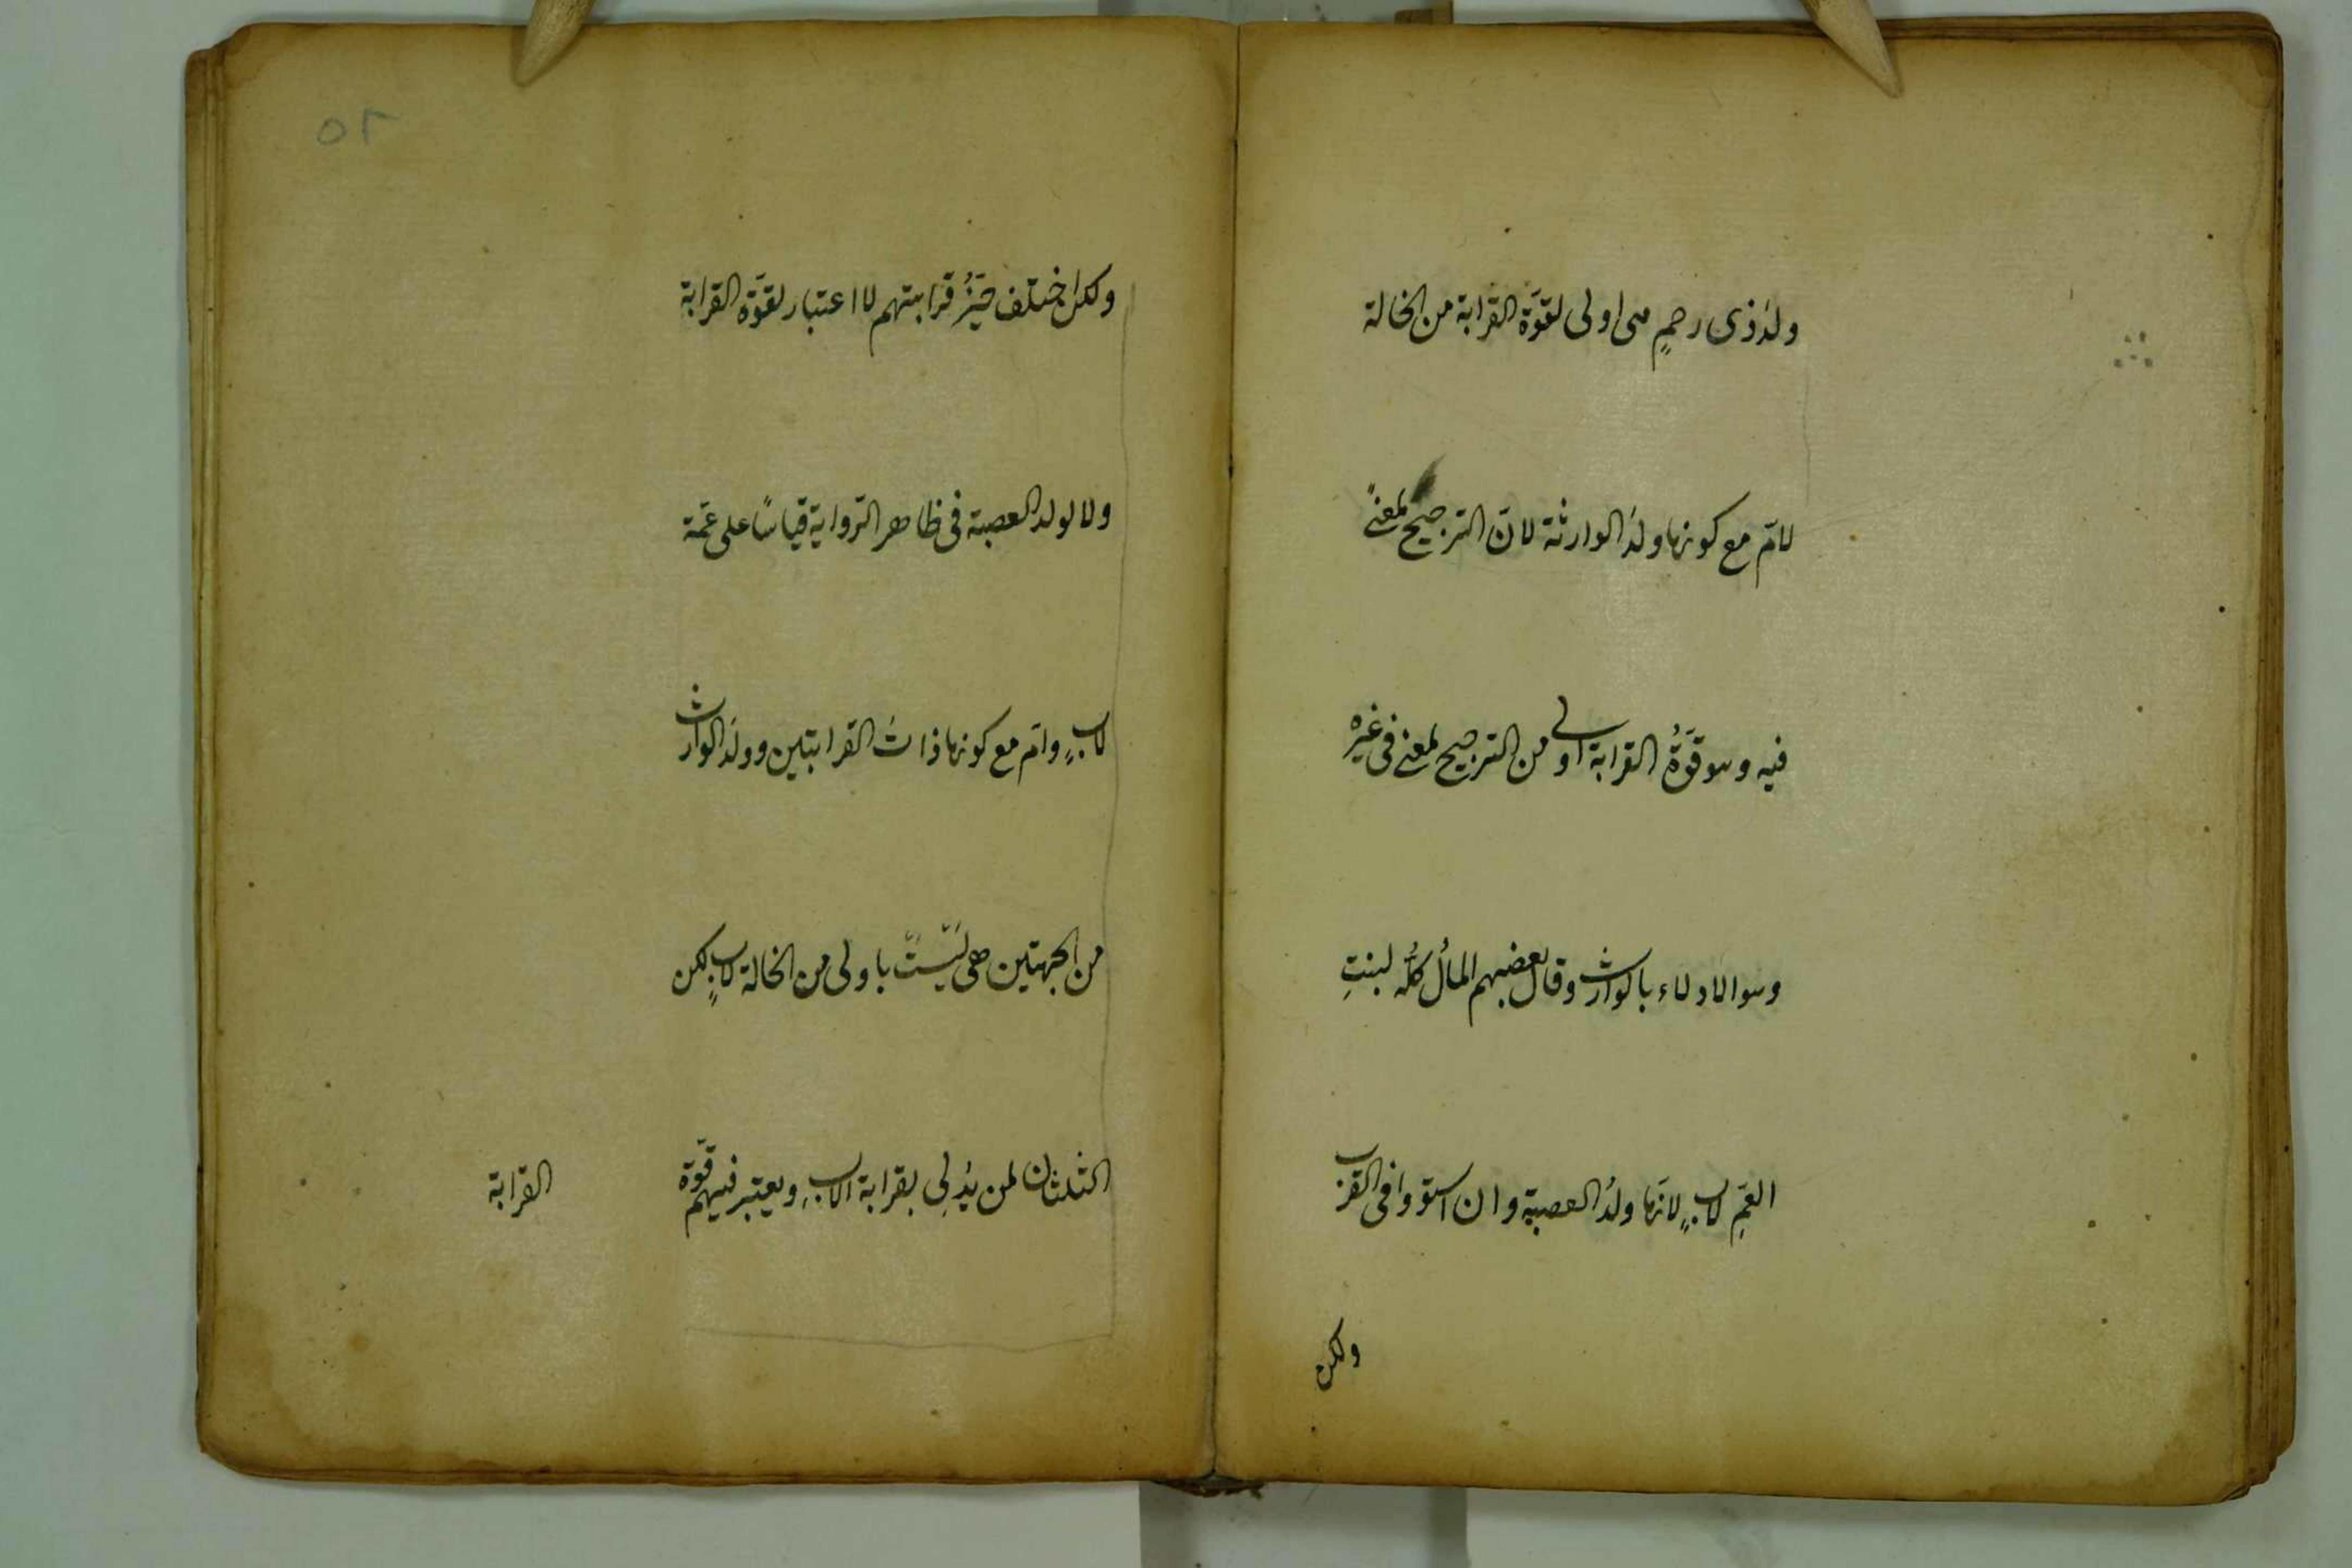 ولدُ ذى رحمٍ هى اولى لقوّة القرابة من الخالة
لامّ مع كونها ولدَ الوارثة لانّ الترجيح لمعنًى
فيه وهو قوّةُ القرابة اولى من الترجيح لمعنى فى غيره
وهو الادلاء بالوارث وقال بعضهم المالُ كلّه لبنتِ
العمّ لابٍ لانّها ولدُ العصبة وان استووا فى القرب
ولكن
ولكن اختلف حيّزُ قرابتهم لا اعتبار لقوّة القرابة
ولا لولد العصبة فى ظاهر الرّواية قياسًا على عمّة
لابٍ وامّ مع كونها ذاتَ القرابتين وولدَ الوارث
من الجهتين هى ليست باولى من الخالة لابٍ لكن
الثلثان لمن يُدلِى بقرابة الابِ ويعتبر فيهم قوّة
القرابة
٥٢